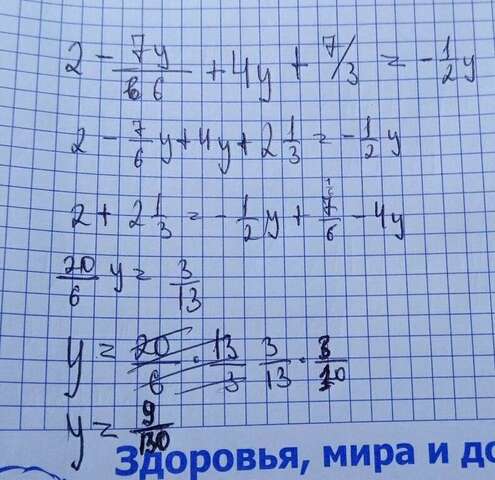 2 - 7y/6 + 4y + 7/3 = - 1/2 y
2 - 7/6 y + 4y + 2 1/3 = - 1/2 y
2 + 2 1/3 = - 1/2 y + 7/6 - 4y
20/6 y = 3/13
y = 20/6 · 13/3 3/13 · 3/10
y = 9/130
Здоровья, мира и до